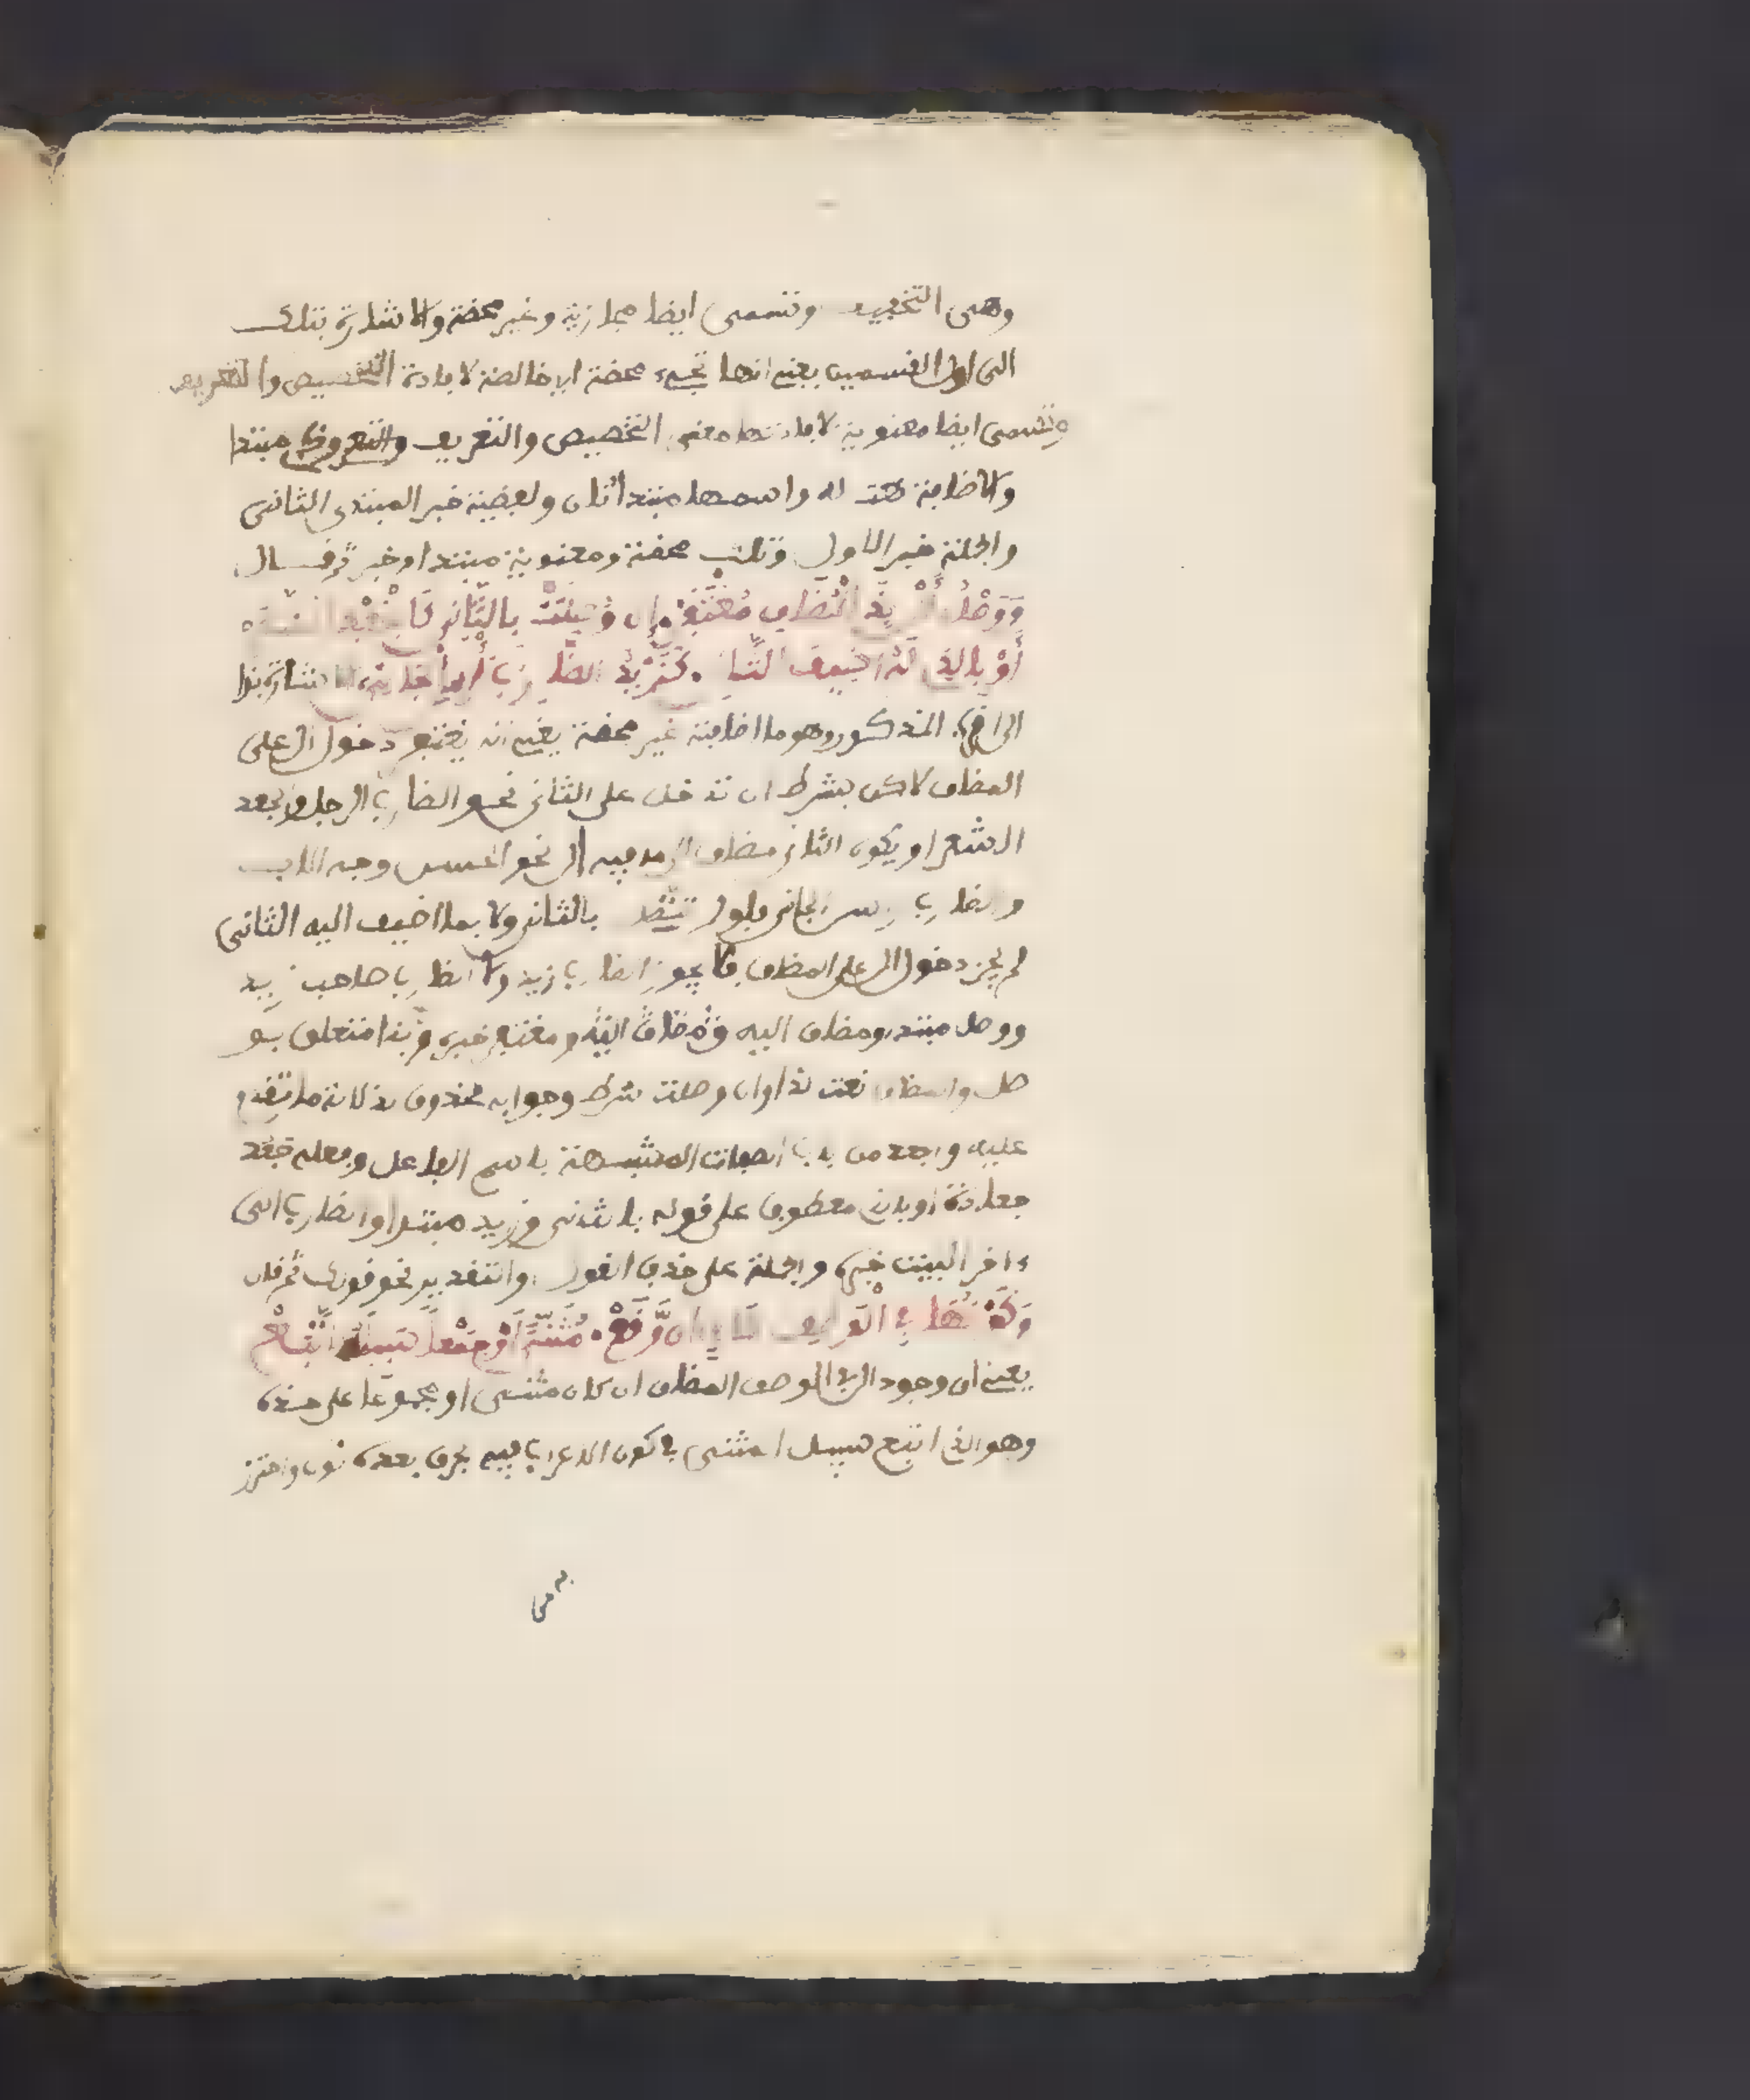 وهى التخفيف وتسمى ايضا مجازية وغير محضة والاشارة بتلك
الى اول القسمين يعنى انها تسمى محضة اى خالصة لافادة التخصيص والتعريف
وتسمى ايضا معنوية لافادتها معنى التخصيص والتعريف مبتدا
والاضافة نعت له واسمها مبتدا ثان ولفظية خبر المبتدى الثانى
والجملة خبر الاول وتلك محضة ومعنوية مبتدا وخبر ثم قال
وَوَصْلُ أَلْ بِذَا الْمُضَافِ مُغْتَفَرْ إن وُصِلَتْ بالثَّانِ كَالْجَعْدِ الشَّعَرْ
أَوْ بالذِى لَهُ أُضِيفَ الثَّانِ كَزَيْدُ الضَّارِبُ رَأْسِ الْجَانِى الاشارة بذا
الى المذكور وهو ما اضافته غير محضة يعنى انه يغتفر دخول ال على
المضاف لاكن بشرط ان تدخل على الثانى نحو الضارب الرجل والجعد
الشعر او يكون الثانى مضاف لما فيه ال نحو الحسن وجه الاب
والضارب راس الجانى فلو لم تتصل بالثانى ولا بما اضيف اليه الثانى
لم يجز دخول ال على المضاف فلا يجوز الضارب زيد ولا الضارب صاحب زيد
ووصل مبتدا ومضاف اليه ومغتفر خبره وبذا متعلق بو
صل والمضاف نعت لذا وان وصلت شرط وجوابه محذوف لدلالة ما تقدم
عليه والجعد من باب الصفات المشبهة باسم الفاعل وفعله جعد
جعادة او بالذى معطوف على قوله بالثانى وزيد مبتدا والضارب الى
ءاخر البيت خبره والجملة على حذف القول والتقدير نحو قولك ثم قال
وَكَوْنُهَا فِى الْوَصْفِ كَافٍ إن وَقَعْ مُثَنًّى أَوْ جَمْعًا سَبِيلَهُ اتَّبَعْ
يعنى ان وجود ال فى الوصف المضاف ان كان مثنى او مجموعا على حده
وهو الذى اتبع سبيل المثنى فى كون الاعراب فيه بحرف بعده نون واحترز